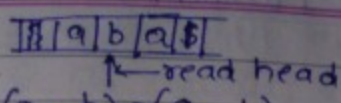 a b a $
read head